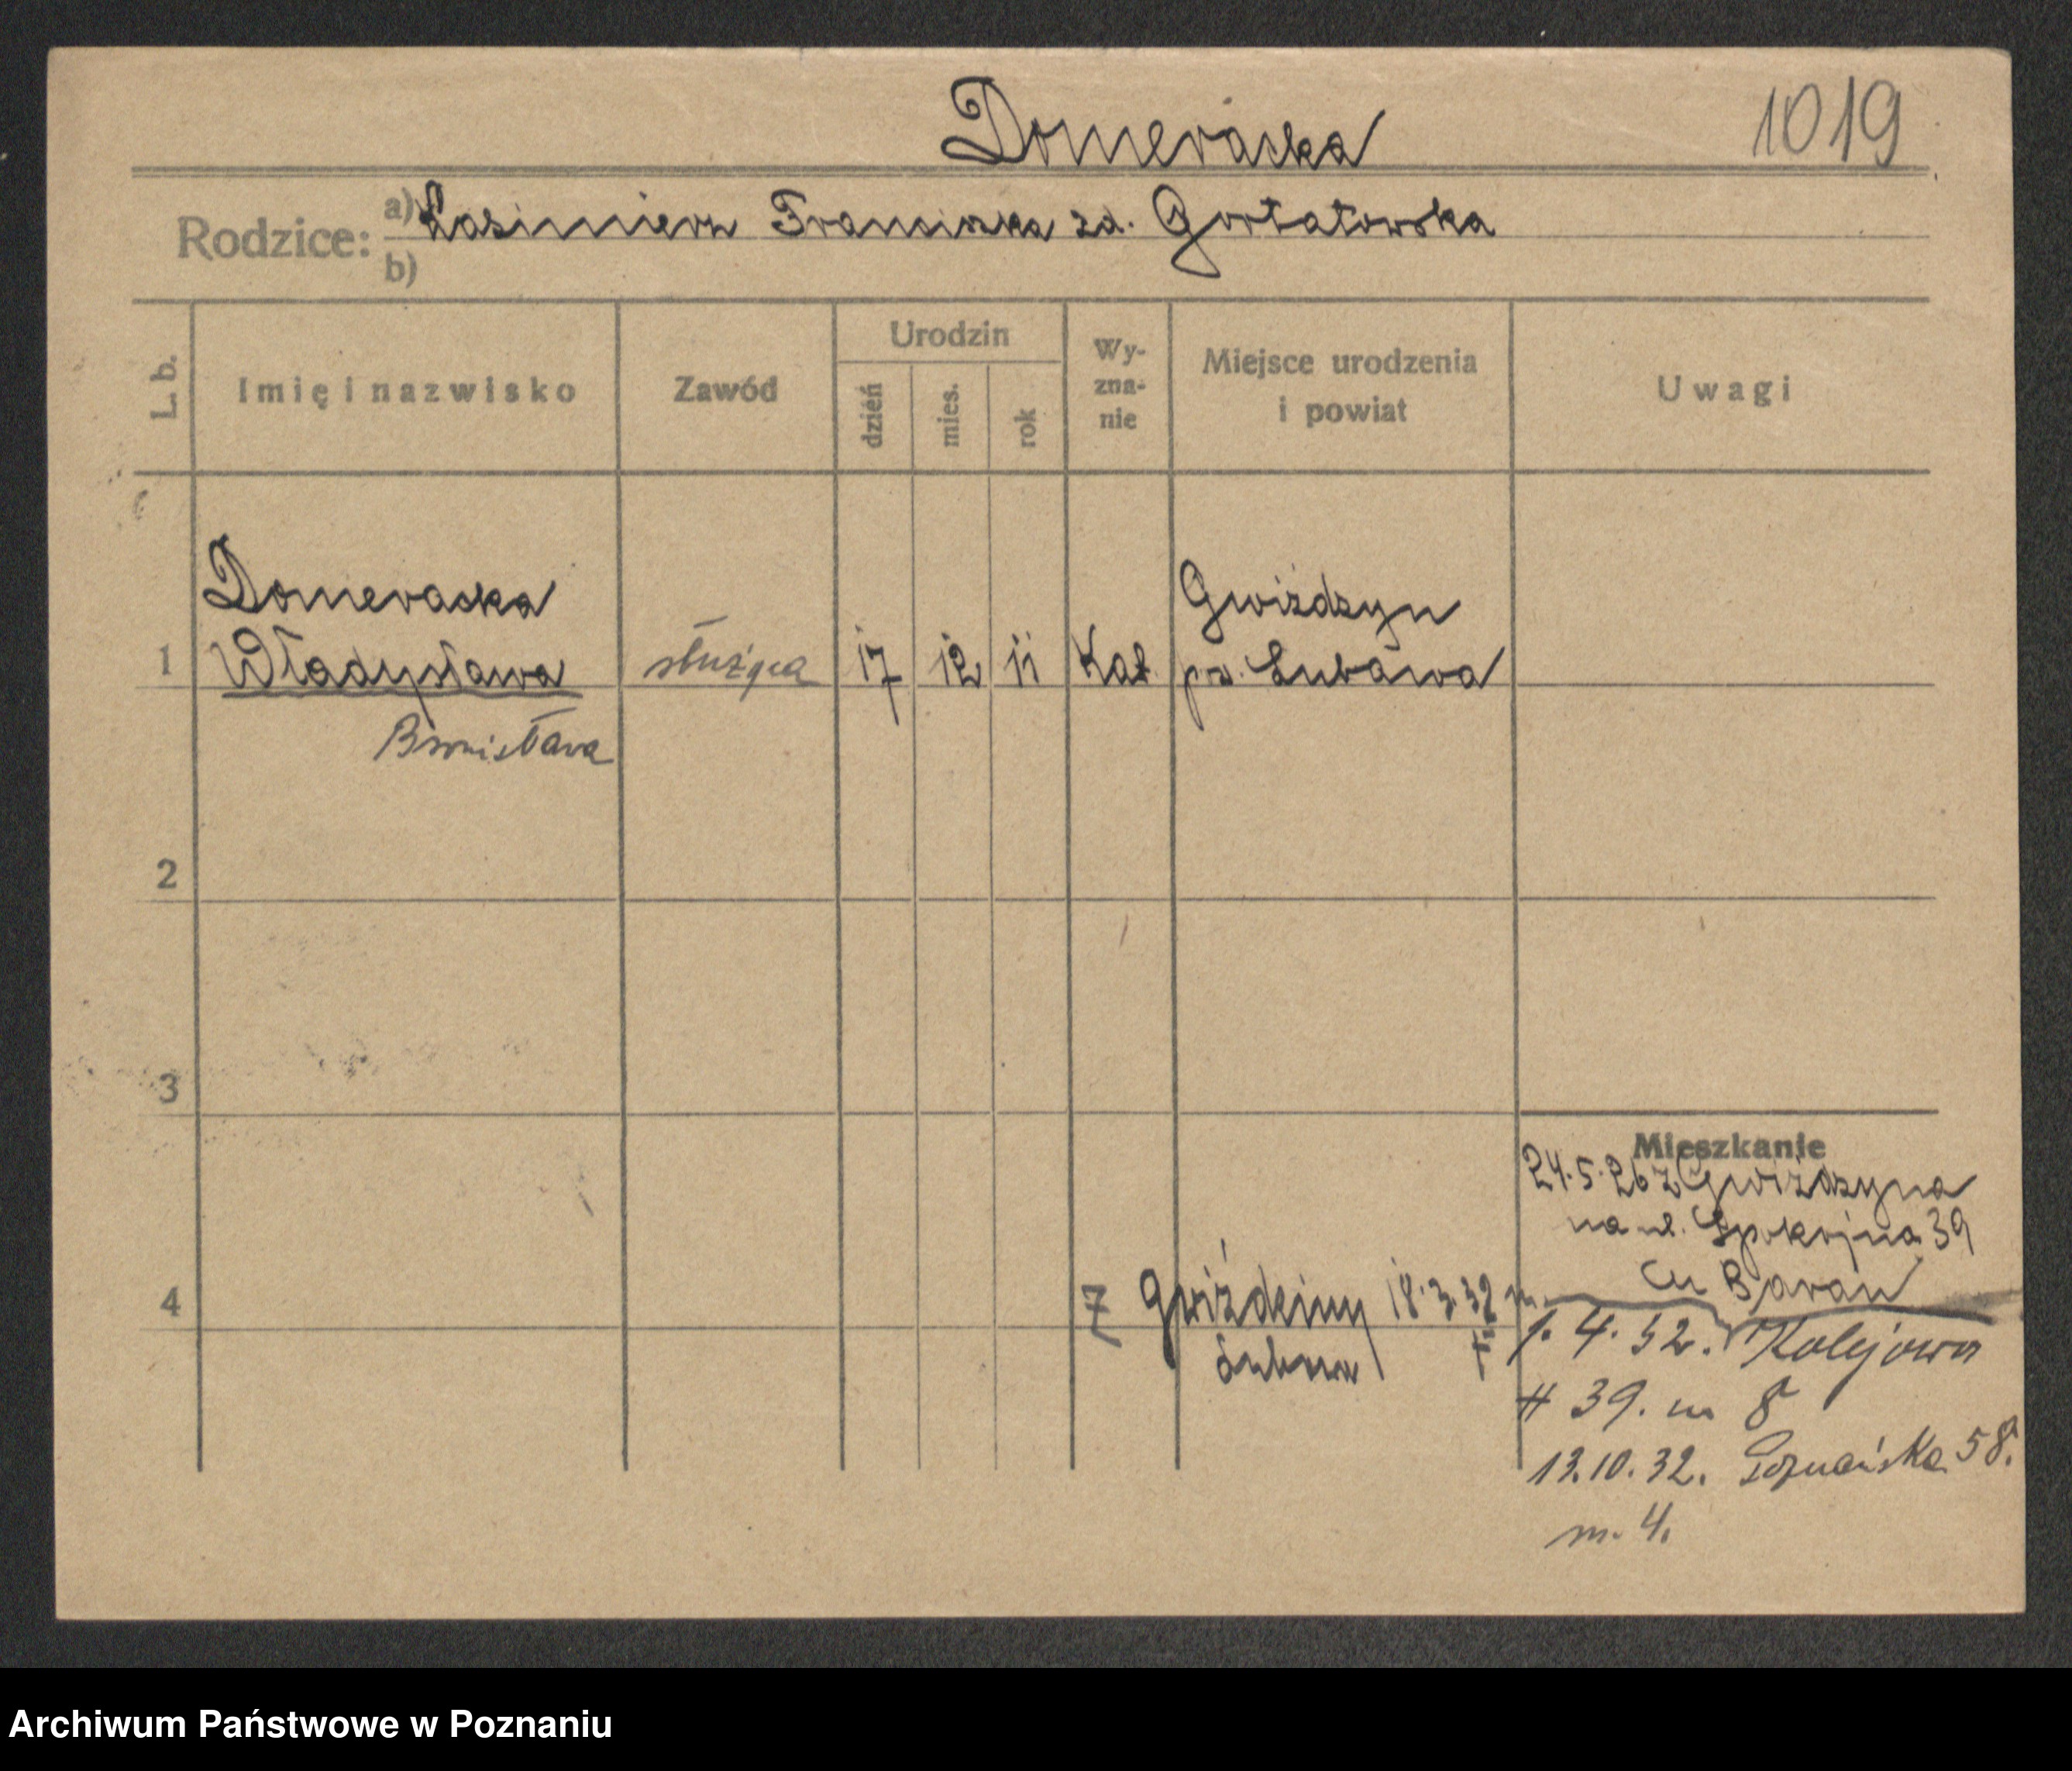 Domeracka 1019
Rodzice: a) Kasimierz Franciszka zd. Gortatowska
b)
L. b. Imię i nazwisko Zawód Urodzin dzień mies. rok Wyznanie Miejsce urodzenia i powiat Uwagi
Domeracka Gwiżdzyn
1 Władysława służąca 17 12 11 Kat. pow. Lubawa
Bronisława
2
3
Mieszkanie
24.5.26 z Gwiżdzyna
na ul. Spokojna 39
Baran
4 z Gwiździny 18.3.32
1.4.32. Kolejowa
39. m 8
13.10.32. Poznańska 58.
m. 4.
Archiwum Państwowe w Poznaniu